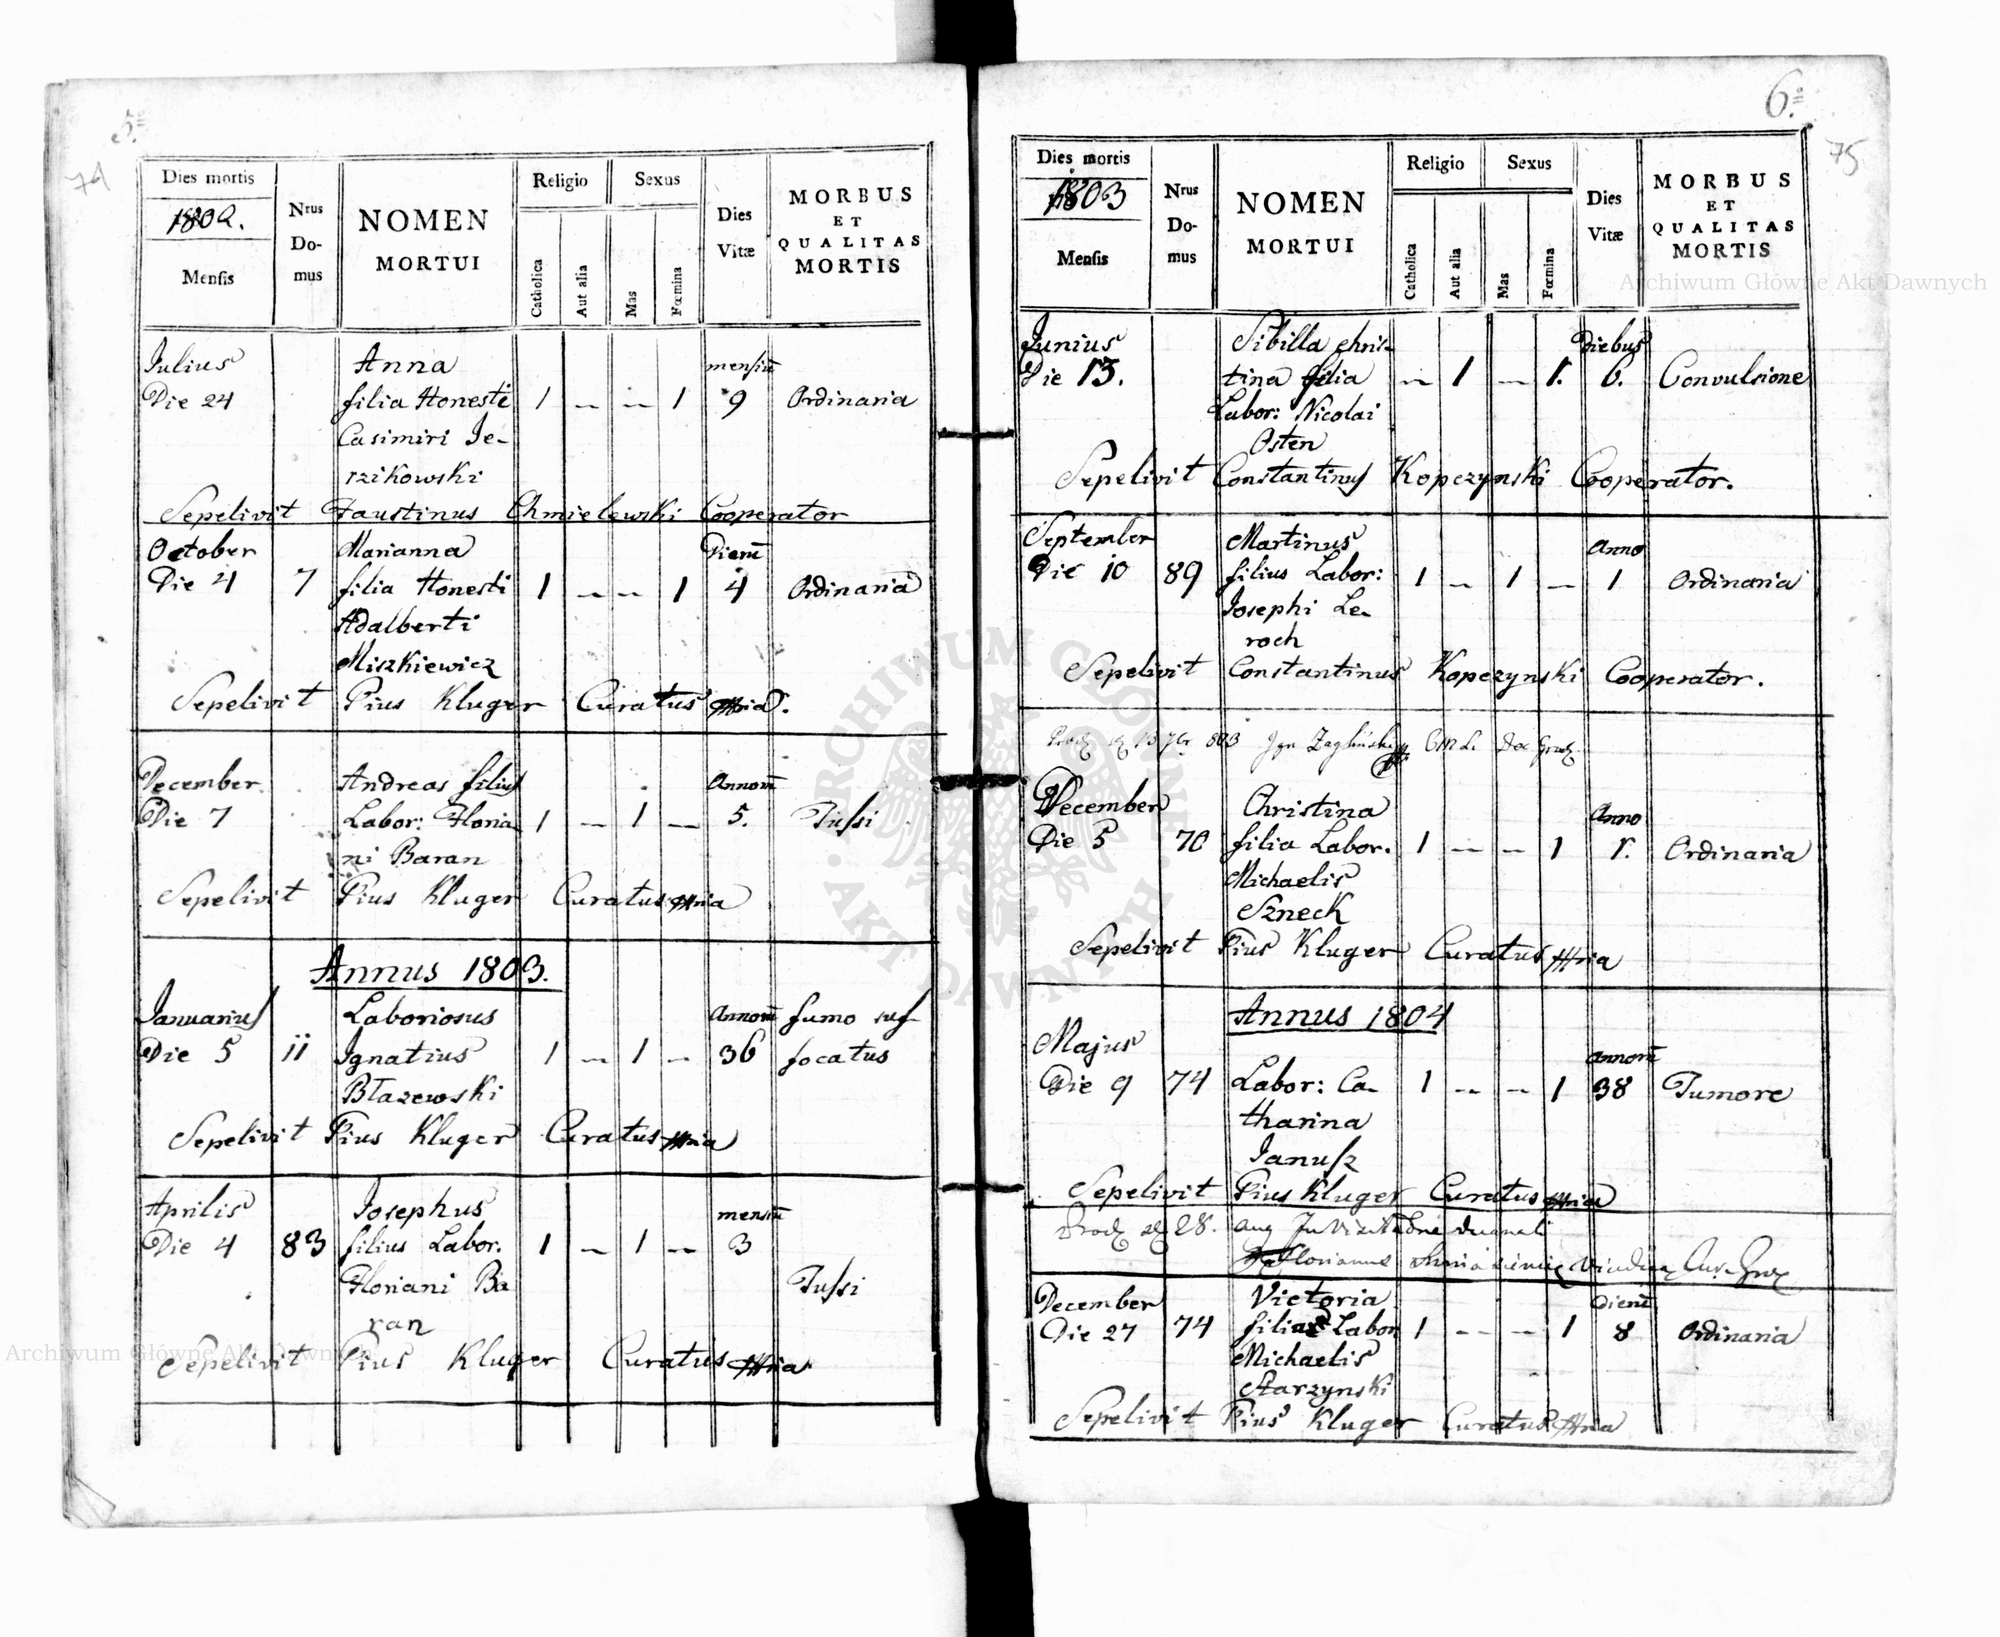 5.
74
Dies mortis
1802.
Mensis
Nrus
Do-
mus
NOMEN
MORTUI
Religio
Catholica
Aut alia
Sexus
Mas
Fœmina
Dies
Vitæ
MORBUS
ET
QUALITAS
MORTIS
Julius Anna mensiū
Die 24 filia Honesti 1 — — 1 9 Ordinaria
Casimiri Je-
rzikowski
Sepelivit Faustinus Chmielewski Cooperator
October Marianna Dierū
Die 4 7 filia Honesti 1 — — 1 4 Ordinaria
Adalberti
Miszkiewicz
Sepelivit Pius Kluger Curatus
December Andreas filius Annorū
Die 7 Labor: Floria- 1 — 1 — 5. Tussi
ni Baran
Sepelivit Pius Kluger Curatus
Annus 1803.
Januarius Laboriosus Annorū fumo suf-
Die 5 ii Ignatius 1 — 1 — 36 focatus
Błazewski
Sepelivit Pius Kluger Curatus
Aprilis Josephus mensiū
Die 4 83 filius Labor. 1 — 1 — 3
Floriani Ba Tussi
ran
Sepelivit Pius Kluger Curatus
6.
75
Dies mortis
1803
Mensis
Nrus
Do-
mus
NOMEN
MORTUI
Religio
Catholica
Aut alia
Sexus
Mas
Fœmina
Dies
Vitæ
MORBUS
ET
QUALITAS
MORTIS
Junius Sibilla Chris- Diebus
Die 13. tina filia — 1 — 1. 6. Convulsione
Labor: Nicolai
Osten
Sepelivit Constantinus Kopczynski Cooperator.
September Martinus Anno
Die 10 89 filius Labor: 1 — 1 — 1 Ordinaria
Josephi Le-
roch
Sepelivit Constantinus Kopczynski Cooperator.
803
December Christina Anno
Die 5 70 filia Labor. 1 — — 1 1. Ordinaria
Michaelis
Szneck
Sepelivit Pius Kluger Curatus
Annus 1804
Majus annorū
Die 9 74 Labor: Ca- 1 — — 1 38 Tumore
tharina
Janusz
Sepelivit Pius Kluger Curatus
28. aug
Florianus
December Victoria Dierū
Die 27 74 filia Labor 1 — — 1 8 Ordinaria
Michaelis
Starzynski
Sepelivit Pius Kluger Curatus
Archiwum Główne Akt Dawnych
Archiwum Główne Akt Dawnych
ARCHIWUM GŁÓWNE
AKT DAWNYCH